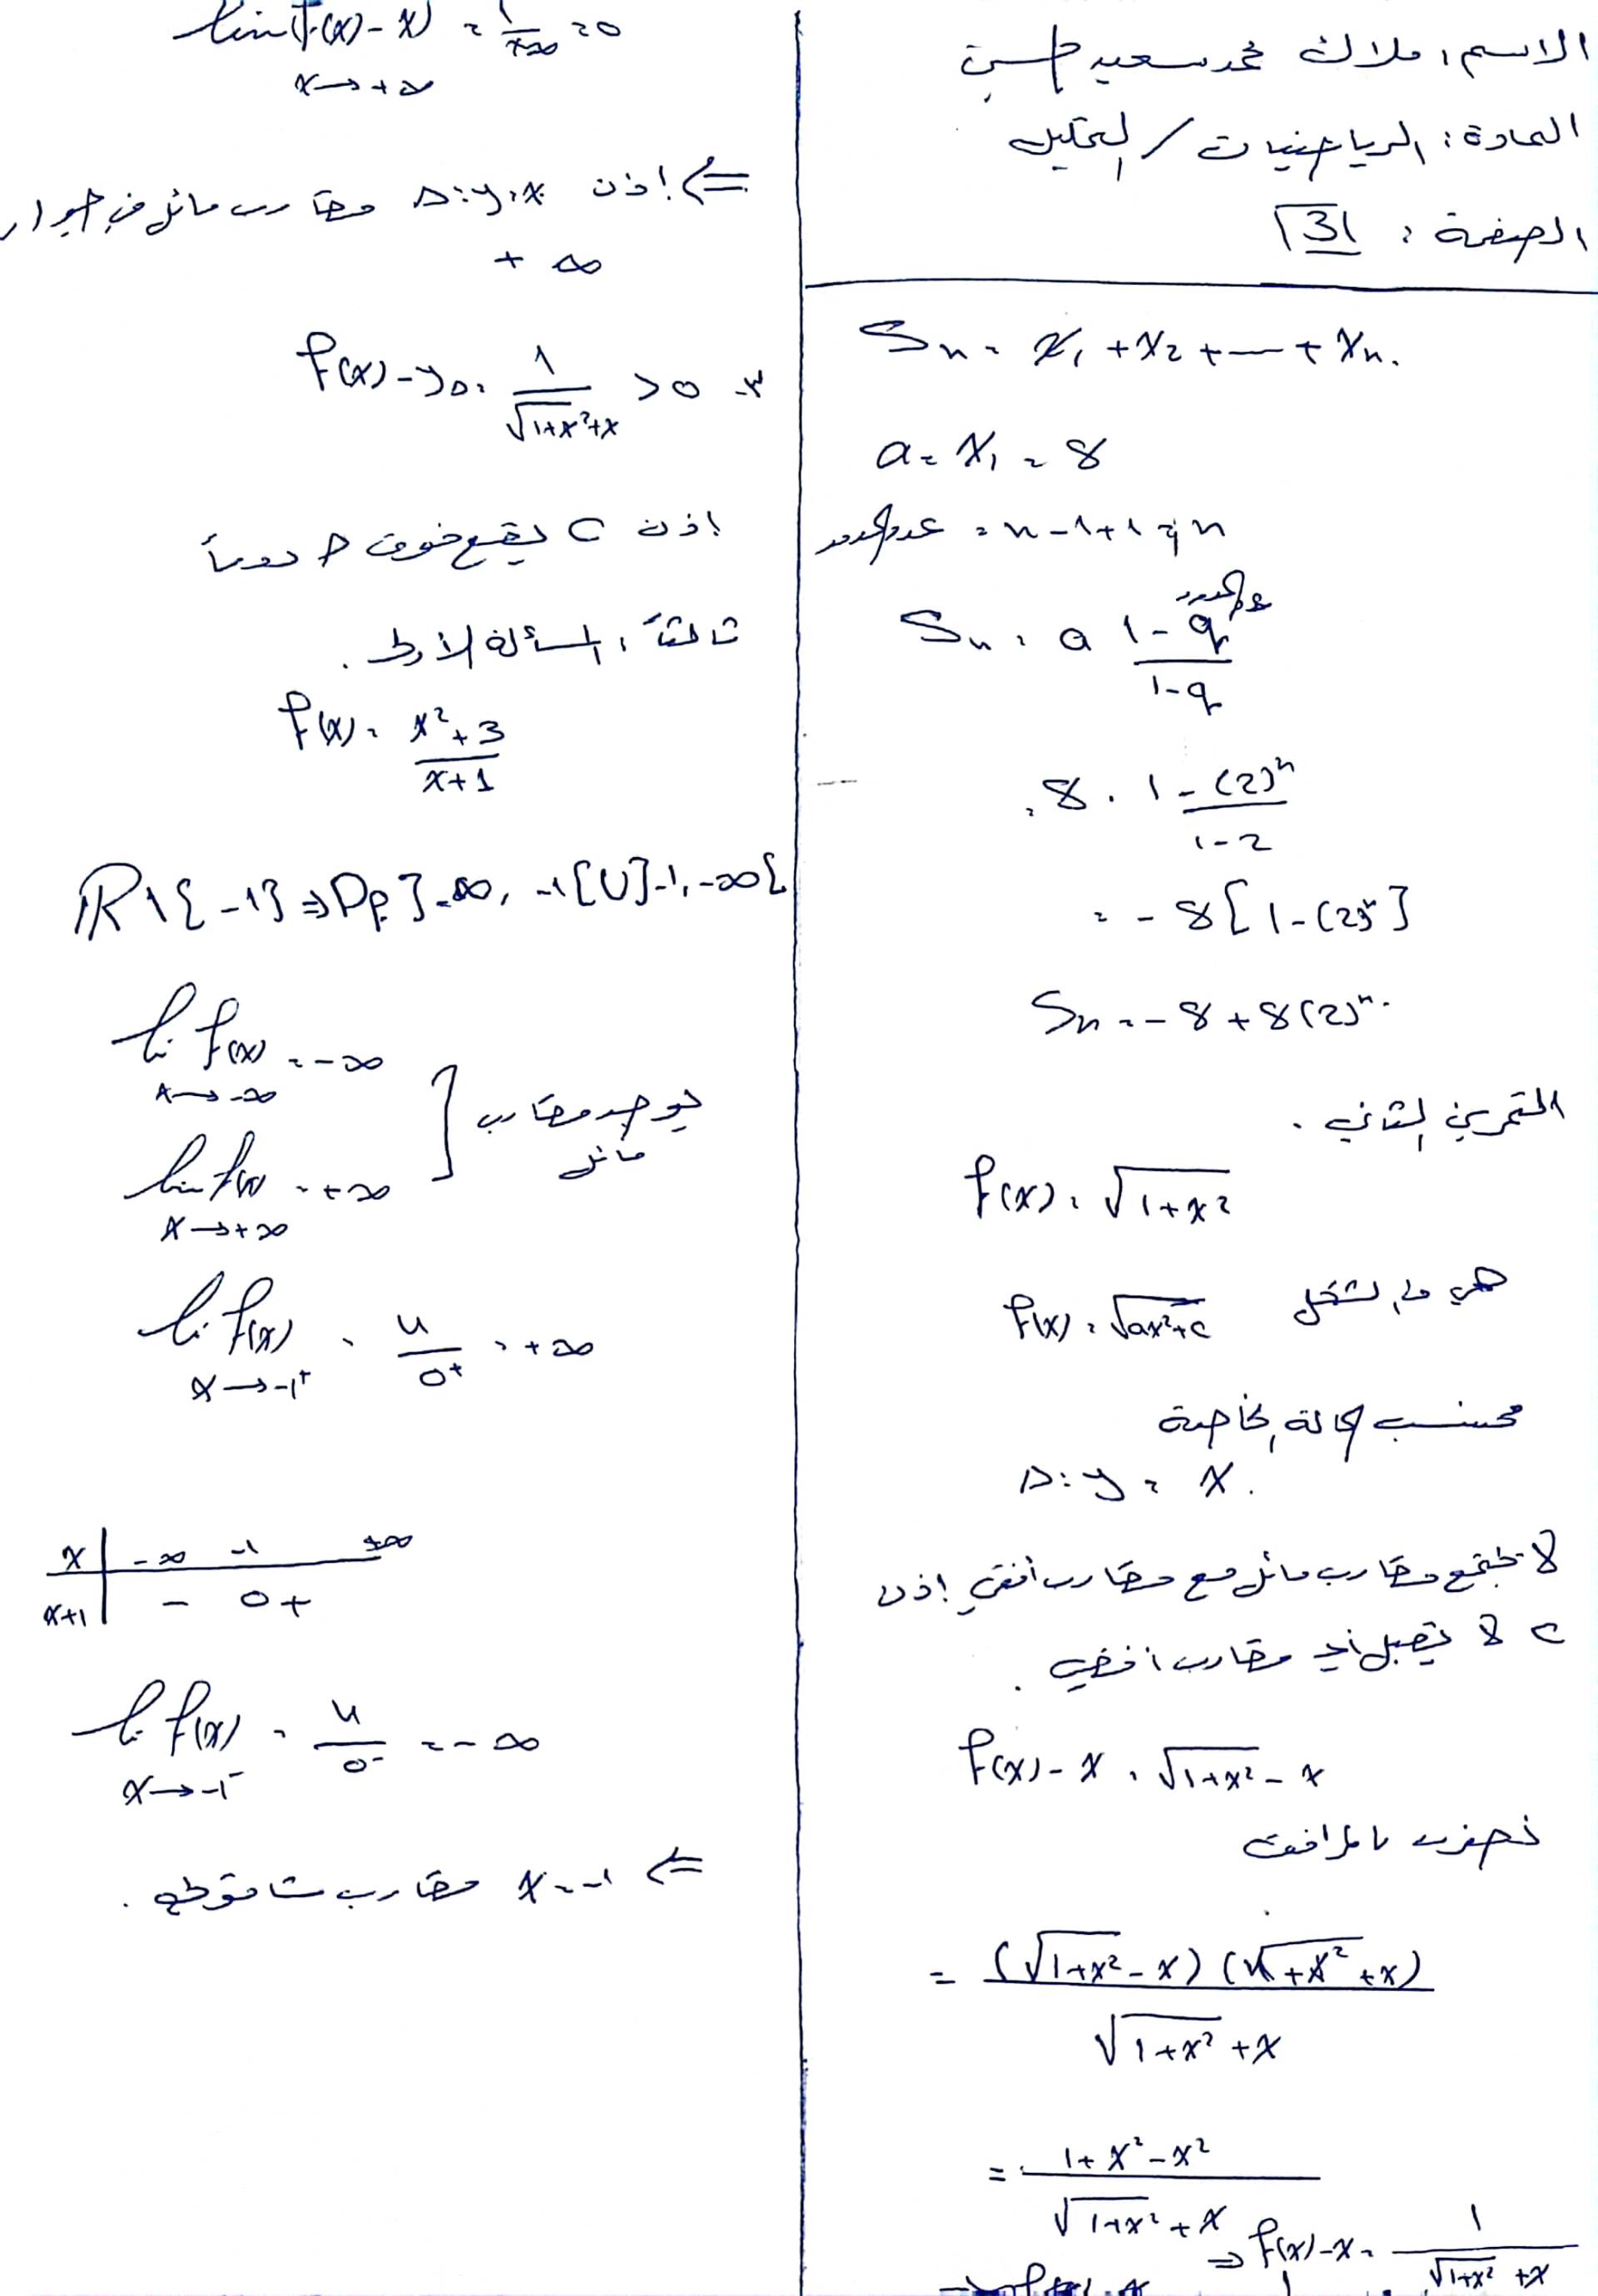 الاسم: ملاك محمد سعيد حسن
المادة: الرياضيات / التحليل
الصفحة: 3
Sn = x1 + x2 + --- + xn.
a = x1 = 8
عدد الحدود = n-1+1 = n
Sn = a (1 - q^عدد الحدود) / (1-q)
= 8 . (1 - (2)^n) / (1-2)
= - 8 [1 - (2)^n]
Sn = - 8 + 8 (2)^n.
التمرين الثاني.
f(x) = √(1+x²)
هي من الشكل f(x) = √(ax²+c)
حسب الحالة الخاصة
Δ: y = x.
لا يجتمع مقارب مائل مع مقارب أفقي إذن
C لا يقبل أي مقارب أفقي.
f(x) - x = √(1+x²) - x
نضرب بالمرافق
= (√(1+x²) - x) (√(1+x²) + x) / (√(1+x²) + x)
= (1 + x² - x²) / (√(1+x²) + x)
⇒ f(x) - x = 1 / (√(1+x²) + x)
lim (f(x) - x) = 1/+∞ = 0
x → +∞
⇐ إذن Δ: y = x مقارب مائل في جوار
+ ∞
3- f(x) - yΔ = 1 / (√(1+x²) + x) > 0
إذن C يقع فوق Δ دوماً
ثالثاً: المسألة الأولى.
f(x) = (x² + 3) / (x + 1)
R \ {-1} ⇒ Df = ]-∞, -1[ U ]-1, -∞[
lim f(x) = -∞
x → -∞
lim f(x) = +∞
x → +∞
يوجد مقارب
مائل
lim f(x) = 4 / 0+ = +∞
x → -1+
x | -∞ -1 +∞
x+1 | - 0 +
lim f(x) = 4 / 0- = -∞
x → -1-
⇐ x = -1 مقارب شاقولي.